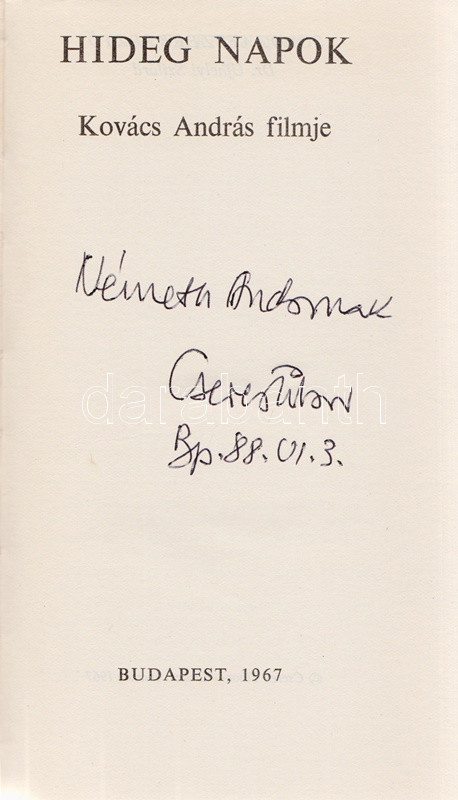 HIDEG NAPOK
Kovács András filmje
Németh Andornak
Cseres Tibor
darabanth
Bp. 88. VI. 3.
BUDAPEST, 1967